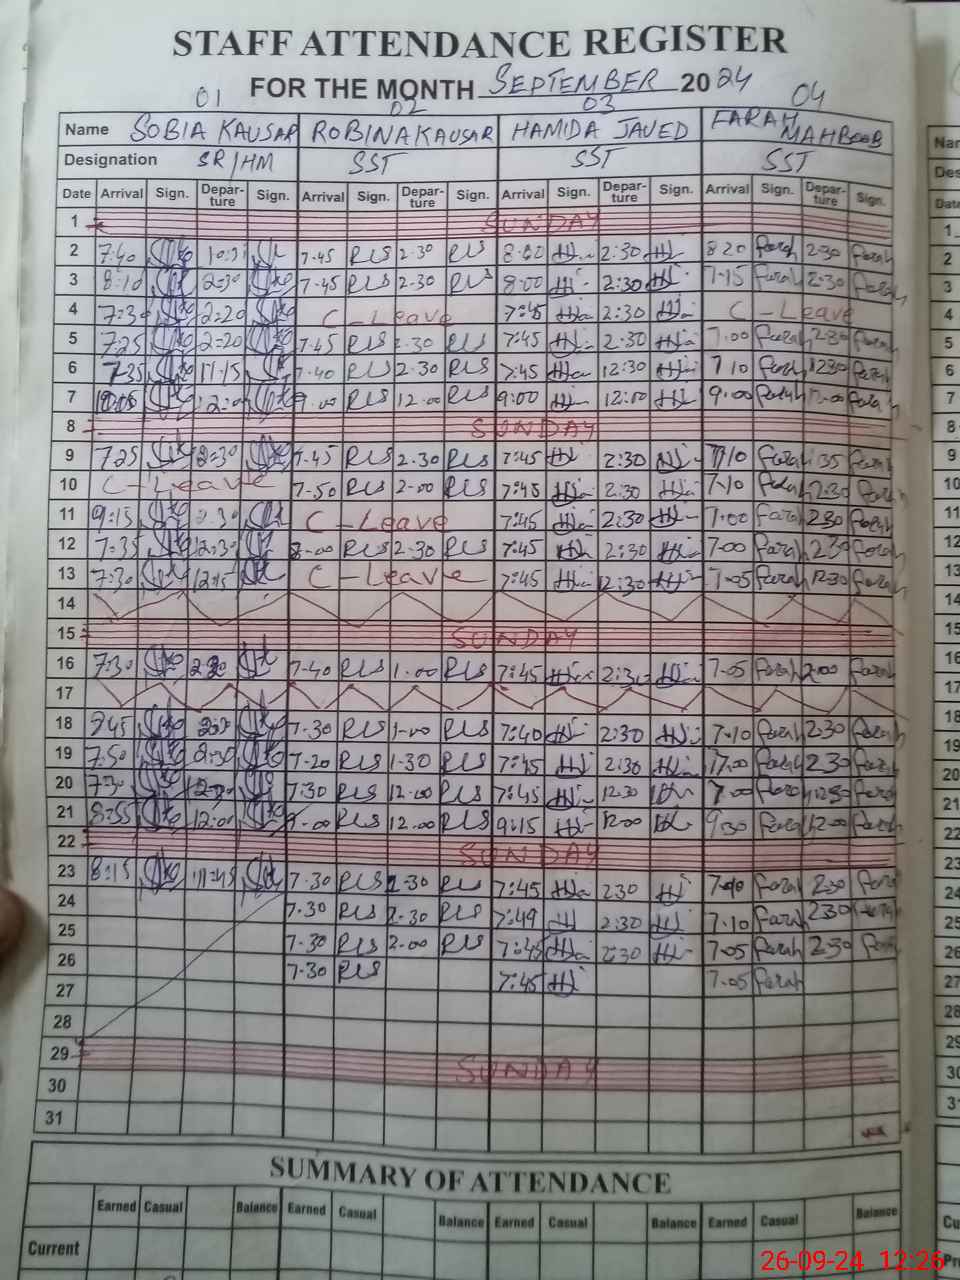 STAFF ATTENDANCE REGISTER
FOR THE MONTH SEPTEMBER 2024
01 02 03 04
Name SOBIA KAUSAR ROBINA KAUSAR HAMIDA JAVED FARAH MAHBOOB
Designation SR/HM SST SST SST
Date Arrival Sign. Depar-ture Sign. Arrival Sign. Depar-ture Sign. Arrival Sign. Depar-ture Sign. Arrival Sign. Depar-ture Sign.
1 SUNDAY
2 7:40 7-45 RLS 2-30 RLS 8:00 2:30 820 Farah 2:30 Farah
3 8:10 7-45 RLS 2-30 RLS 8:00 2:30 7-15 Farah 2:30 Farah
4 7:30 2:20 C-Leave 7:45 2:30 C-Leave
5 7:25 2:20 7-45 RLS 2.30 RLS 7:45 2:30 7.00 Farah 2:30 Farah
6 7:35 11:15 7-40 RLS 2.30 RLS 7:45 12:30 710 Farah 1230 Farah
7 9.00 RLS 12.00 RLS 9:00 12:00 9.00 Farah 12.00 Farah
8 SUNDAY
9 725 2:30 7-45 RLS 2.30 RLS 7:45 2:30 Farah Farah
10 C-Leave 7-50 RLS 2-00 RLS 7:45 2:30 7-10 Farah 2:30 Farah
11 9:15 2.30 C-Leave 7:45 2:30 7-00 Farah 230 Farah
12 7:35 2:30 8-00 RLS 2-30 RLS 7:45 2:30 7-00 Farah 230 Farah
13 7:30 12:15 C-Leave 7:45 12:30 7-05 Farah 12:30 Farah
14
15 SUNDAY
16 7:30 7-40 RLS 1.00 RLS 7:45 2:30 7-05 Farah 2:00 Farah
17
18 7-30 RLS 1-00 RLS 7:40 2:30 7-10 Farah 2:30 Farah
19 7:50 2:30 7-20 RLS 1-30 RLS 7:45 2:30 Farah 2.30 Farah
20 7:30 RLS 12.00 RLS 7:45 12:30 7.00 Farah 12:30 Farah
21 8:55 12:00 9-00 RLS 12.00 RLS 9:15 12:00 9:30 Farah 12-00 Farah
22 SUNDAY
23 8:15 11:45 7.30 RLS 2-30 RLS 7:45 230 Farah 2:30 Farah
24 7.30 RLS 2-30 RLS 7:49 2:30 7-10 Farah 230 Farah
25 7.30 RLS 2-00 RLS 7:45 2:30 7-05 Farah 2-30 Farah
26 7-30 RLS 7:45 7-05 Farah
27
28
29 SUNDAY
30
31
SUMMARY OF ATTENDANCE
Earned Casual Balance Earned Casual Balance Earned Casual Balance Earned Casual Balance
Current
26-09-24 12:26